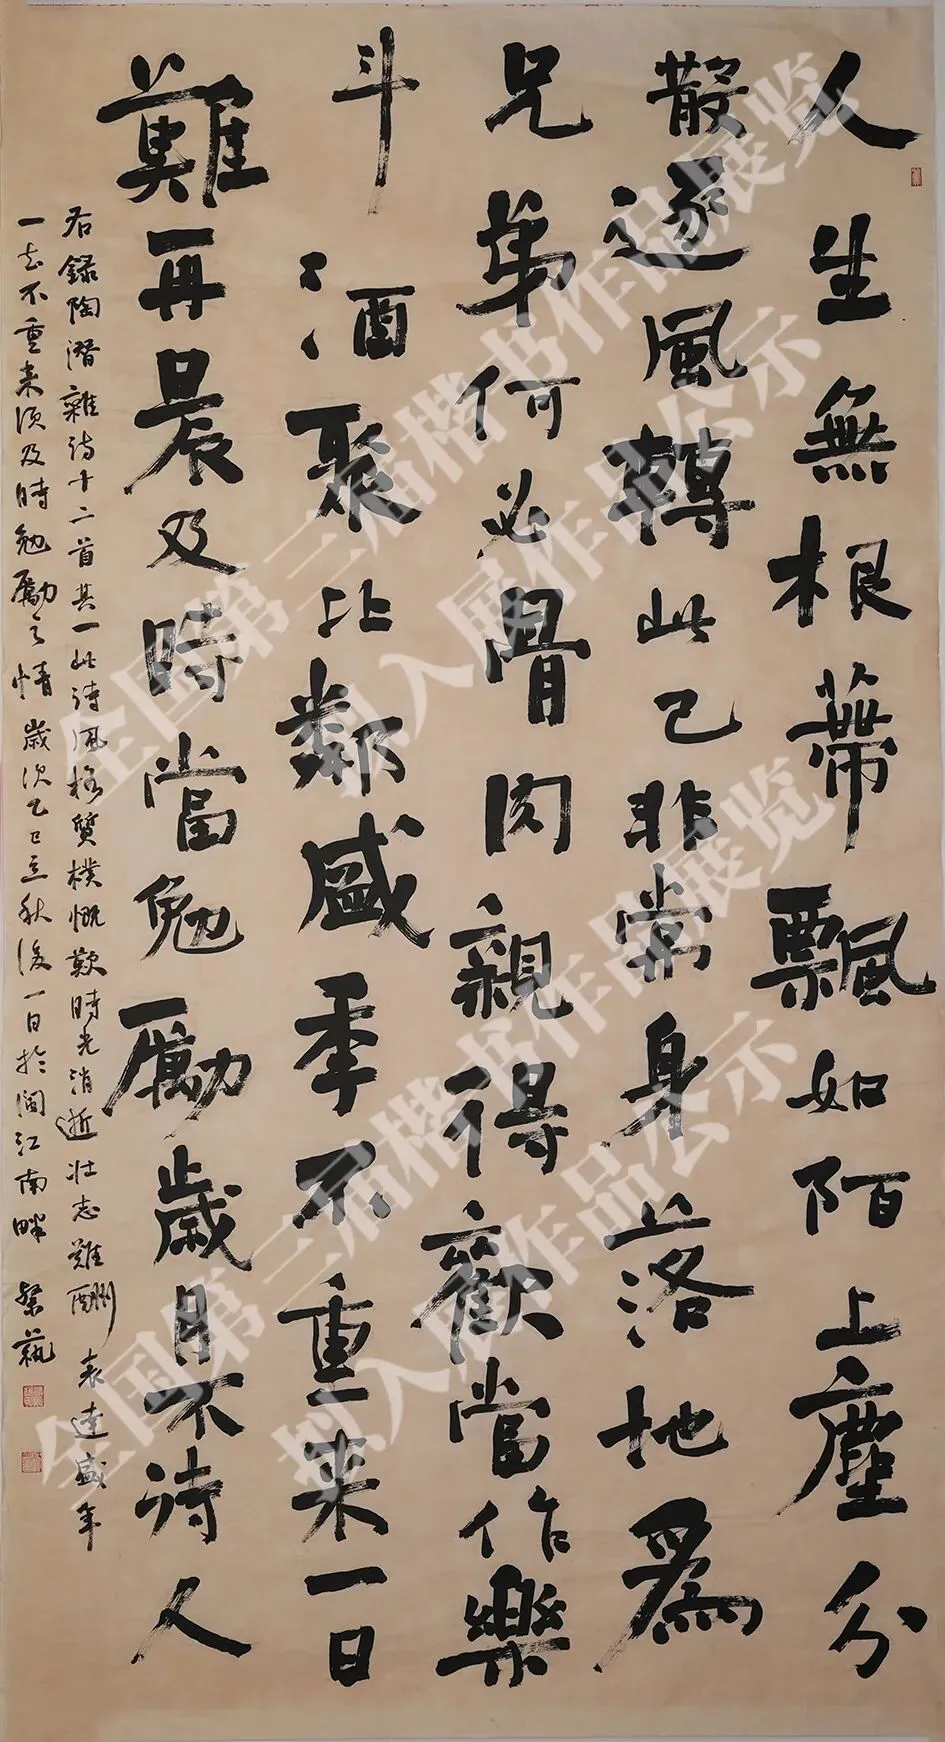 人生無根蒂飄如陌上塵分
散逐風轉此已非常身落地為
兄弟何必骨肉親得歡當作樂
斗酒聚比鄰盛年不重來一日
難再晨及時當勉勵歲月不待人
右錄陶潛雜詩十二首其一此詩風格質樸慨歎時光消逝壯志難酬表達盛年
一去不重来須及時勉勵之情歲次乙巳立秋後一日於闽江南畔
全国第三届楷书作品展览
拟入展作品公示
全国第三届楷书作品展览
拟入展作品公示